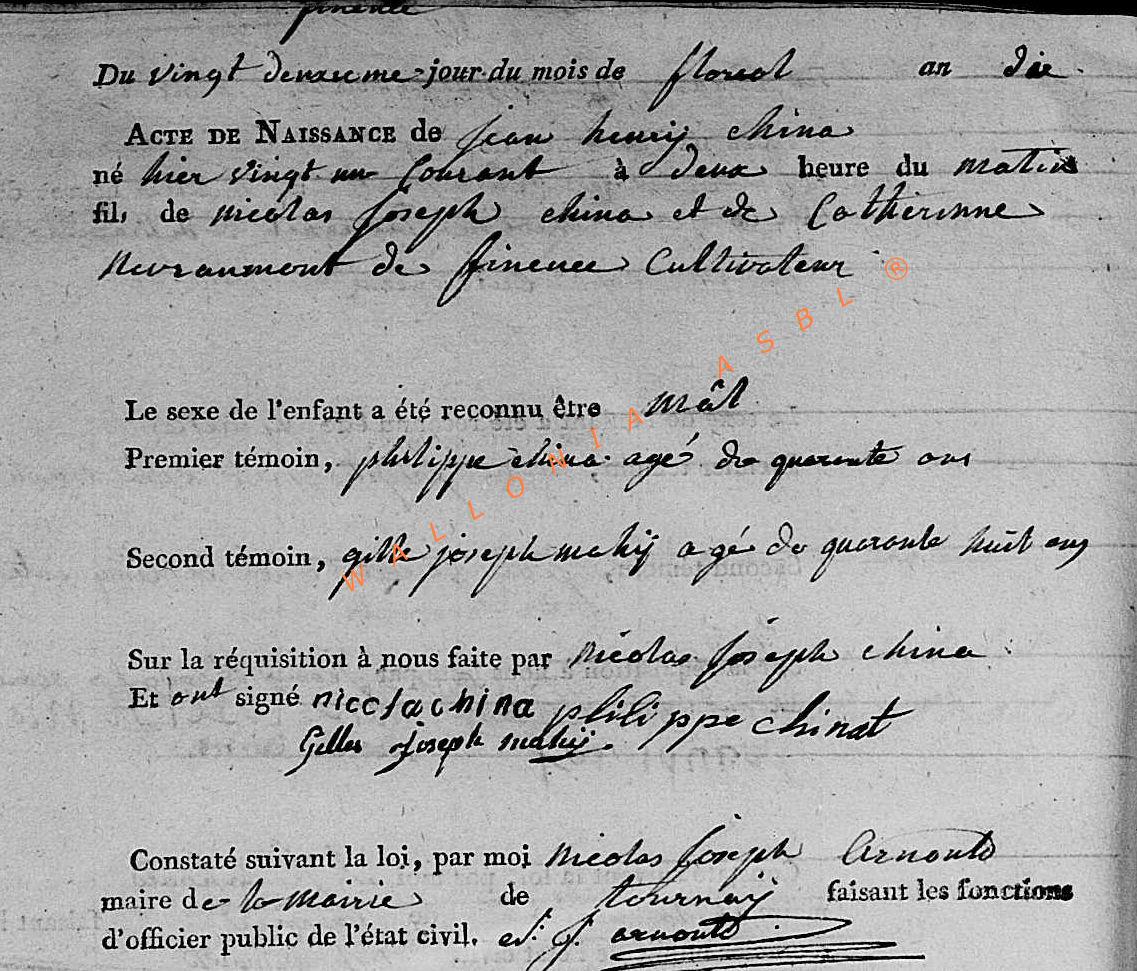 finenée
Du vingt deuxieme jour du mois de floreal an dix
ACTE DE NAISSANCE de jean henrij china
né hier vingt un Courant à deux heure du matin
fils de nicolas joseph china et de Catherinne
Nevraumont de finenee Cultivateur
Le sexe de l'enfant a été reconnu être mâl
Premier témoin, philippe china agé de quarente ans
Second témoin, gille joseph mahij agé de quarante huit ans
Sur la réquisition à nous faite par Nicolas joséph china
Et ont signé nicolachina philippe chinat
Gilles joseph mahij.
Constaté suivant la loi, par moi Nicolas joseph Arnould
maire de la mairie de tournaij faisant les fonctions
d'officier public de l'état civil. n. j. arnould
WALLONIA ASBL ®